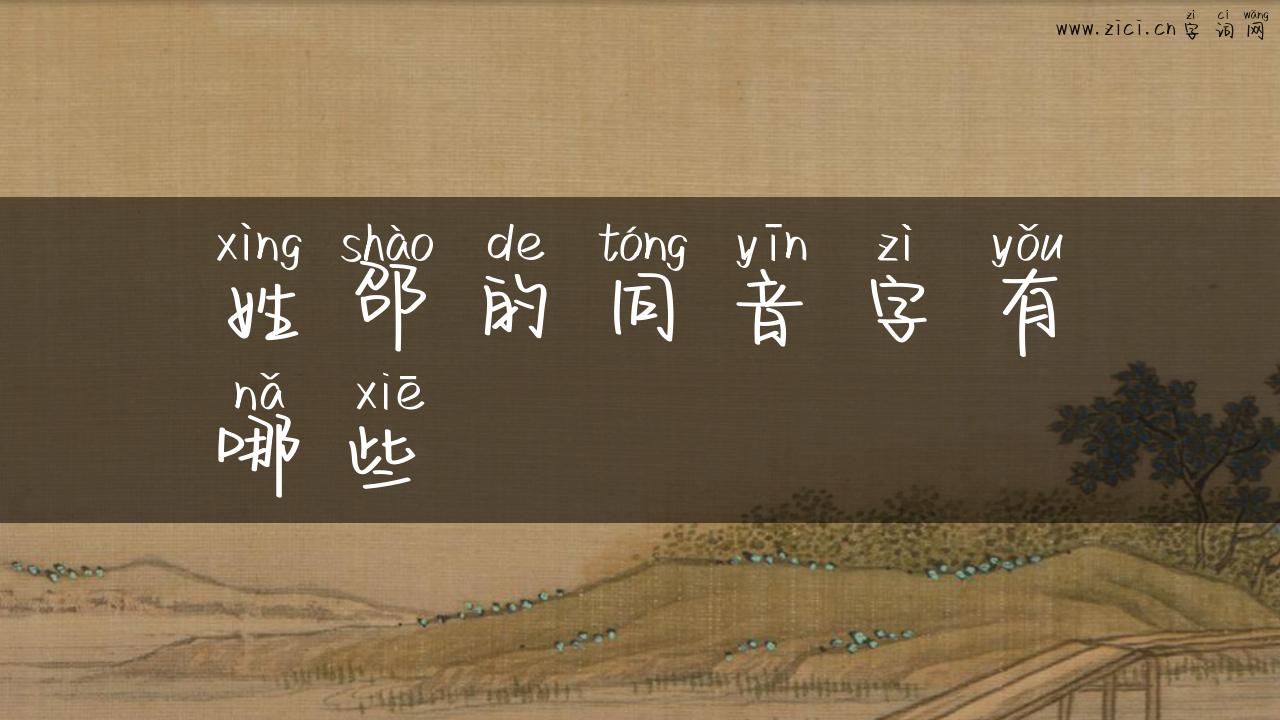 zì cí wǎng
www.zici.cn字词网
xìng shào de tóng yīn zì yǒu
姓邵的同音字有
nǎ xiē
哪些